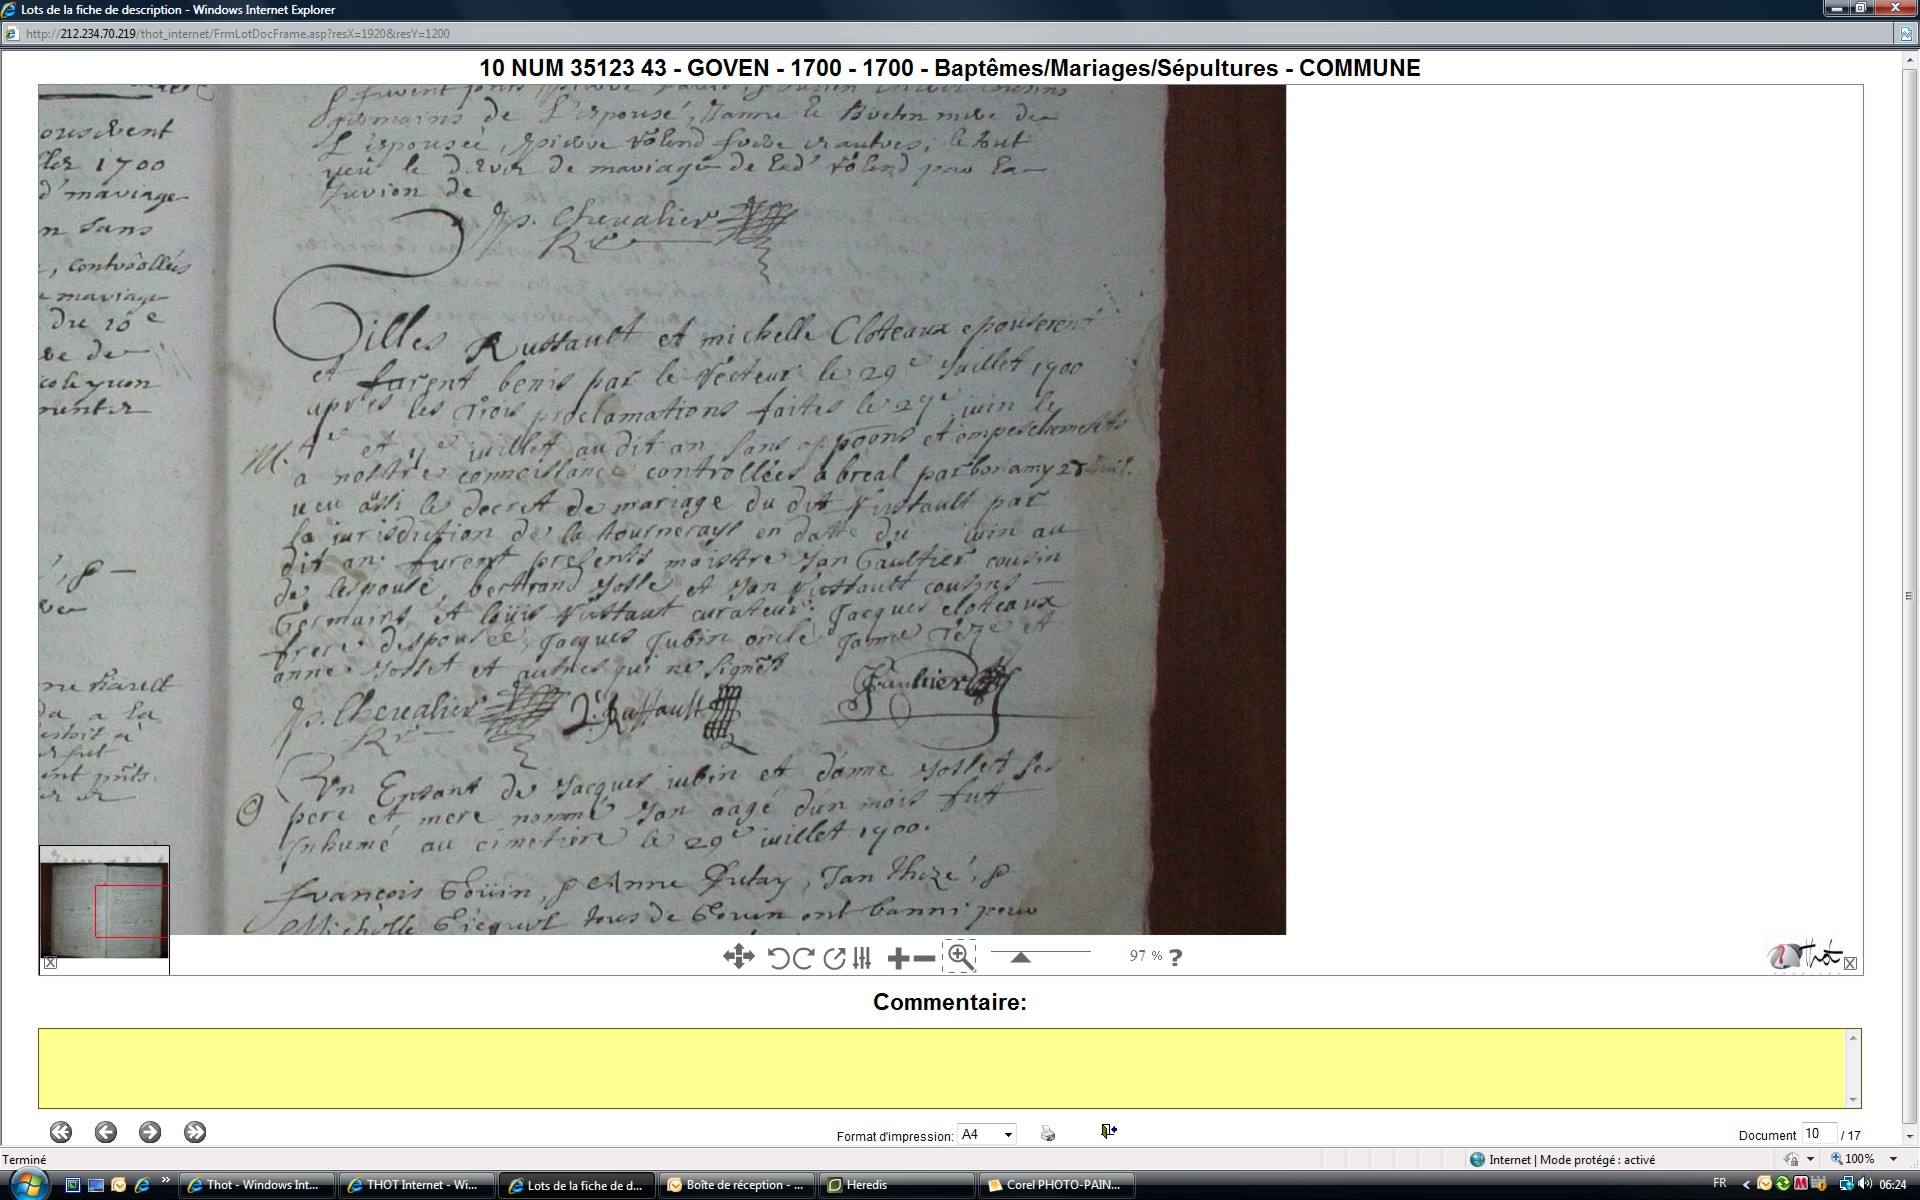 Lots de la fiche de description - Windows Internet Explorer
http://212.234.70.219/thot_internet/FrmLotDocFrame.asp?resX=1920&resY=1200
10 NUM 35123 43 - GOVEN - 1700 - 1700 - Baptêmes/Mariages/Sépultures - COMMUNE
germains de L'epousé, Janne le Breton mere de
L'epousée, pierre
de mariage de par la
Juridion de
p. Chevalier
Rr
Gilles Russault et michelle Cloteaux epouserent
et furent benis par le Recteur le 29e Juillet 1700
apres les trois proclamations faites le 27e juin le
M. 4e et juillet au dit an sans oppoons et empeschements
a nostre connoissance controllées a breal par bonamy
veu aussi le decret de mariage du dit Russault par
la jurisdiction de la tournerays en datte du juin au
dit an. furent presents maistre Jan Gaultier cousin
de lespousé, bertrand Josse et Jan Russault cousins
Germains et louis Russaut curateur: Jacques cloteaux
frere despousée, Jacques Jubin oncle Janne et
anne Josset et autres qui ne signet
p. Chevalier Russault Gaultier
Rr
Un Enfant de Jacques iubin et danne Josset ses
pere et mere nommé Jan aagé dun mois fut
Inhumé au cimetiere le 29e iuillet 1700.
françois Goüin, & Anne , Jan thezé, &
Michelle Gicquel tous de Goven ont banni pour
ousirent
1700
d'mariage
n sans
, controollées
e mariage
du 10e
ve de
cole yuon
97 % ?
Thot
Commentaire:
Format d'impression: A4
Document 10 / 17
Terminé
Internet | Mode protégé : activé
100%
Thot - Windows Int...
THOT Internet - Wi...
Lots de la fiche de d...
Boîte de réception - ...
Heredis
Corel PHOTO-PAIN...
FR
06:24